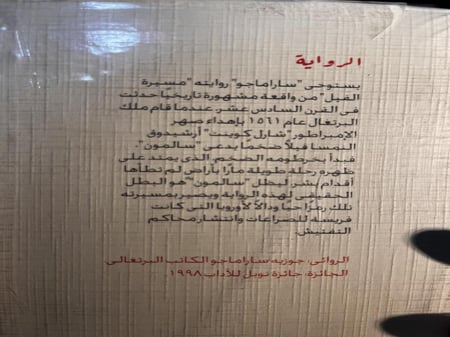 الرواية
يستوحى "ساراماجو" روايته "مسيرة
الفيل" من واقعة مشهورة تاريخيا حدثت
فى القرن السادس عشر، عندما قام ملك
البرتغال عام ١٥٦١ بإهداء صهر
الإمبراطور "شارل كوينت" أرشيدوق
النمسا فيلاً ضخمًا يدعى "سالمون".
فبدأ بخرطومه الضخم، الذى يمتد على
ظهره رحلة طويلة مارًا بأراض لم تطأها
أقدام بشر. البطل "سالمون" هو البطل
الحقيقى لهذه الرواية ويصير بمسيرته
تلك رمزًا حيًا ودالاً لأوروبا التى كانت
فريسة للصراعات وانتشار محاكم
التفتيش.
الروائى: جوزيه ساراماجو الكاتب البرتغالى
الجائزة: جائزة نوبل للآداب ١٩٩٨.